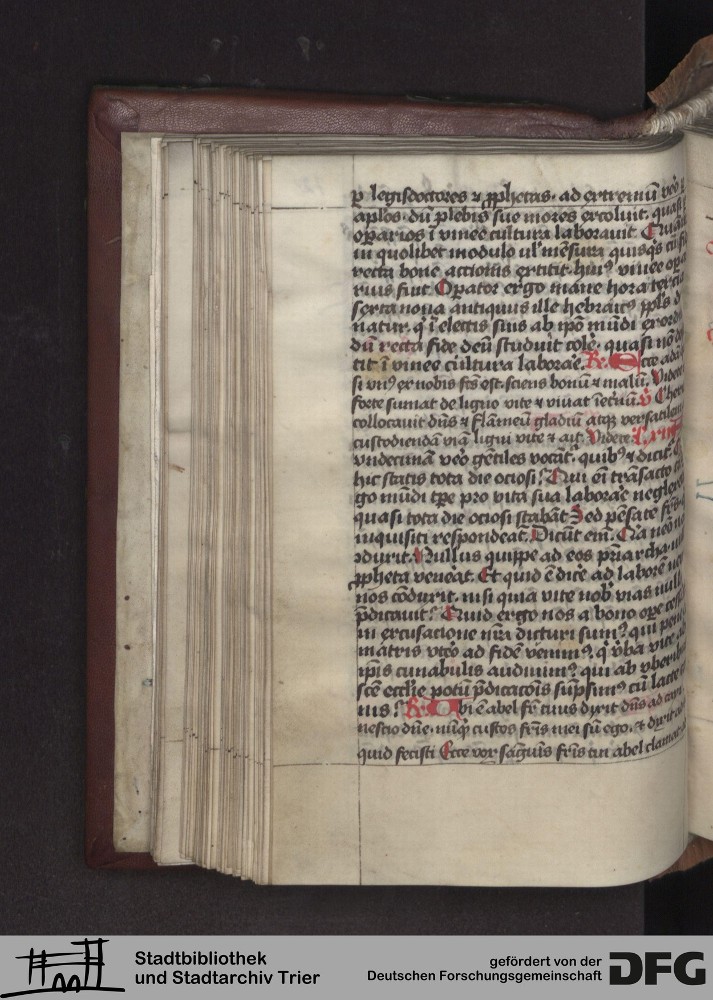 p legisdoctores ⁊ ꝓphetas· ad extremū vo
aplos· dū plebis sue mores excoluit· quasi
oꝑarios ī vinee cultura laborauit Quāuis
in quolibet modulo ul' mēsura quisqs cū
recta bone actionis extitit· huiꝰ vinee opa
rius fuit Oꝑator ergo mane hora tercia
sexta nona antiquus ille hebraicꝰ ppls
natur· q ī electis suis ab ipō mūdi exord
dū recta fide deū studuit cole· quasi nō
tit ī vinee cultura laborae· Re· Ecce adā
si vnꝰ ex nobis fcs est· sciens bonū ⁊ malū· Videte
forte sumat de ligno vite ⁊ viuat ī etnū V Cher
collocauit dns ⁊ flāmeū gladiū atqꝫ versatilem
custodiendā viā ligni vite ⁊ ait Videte
vndecimā veo gentiles vocāt· quibꝰ ⁊ dicit·
hic statis tota die ociosi? Qui eni trāsacto
go mūdi tpe pro vita sua laborae neglex
quasi tota die ociosi stabāt Sed pēsate
inquisiti respondeāt Dicūt eni· Quia nēo nos
ɔduxit· Nullus quippe ad eos priarcha·
ꝓpheta veneat· Et quid ē dice ad laborē
nos cōduxit· nisi quia vite nob vias null
pdicauit? Quid ergo nos a bono ope
in excusacione nra dicturi sumꝰ qui pene
matris vteo ad fidē venimꝰ· q vba vite
ipis cunabulis audiuimꝰ qui ab vberibꝰ
scē ecclie potū pdicacōis sūpsimꝰ cū lacte
nis? Re· Vbi ē abel fr tuus dixit dns ad cayn
nescio dne· nūqd custos fris mei sū ego· ⁊ dixit ad
quid fecisti Ecce vox saguis fris tui abel clamat
Stadtbibliothek
und Stadtarchiv Trier
gefördert von der
Deutschen Forschungsgemeinschaft
DFG